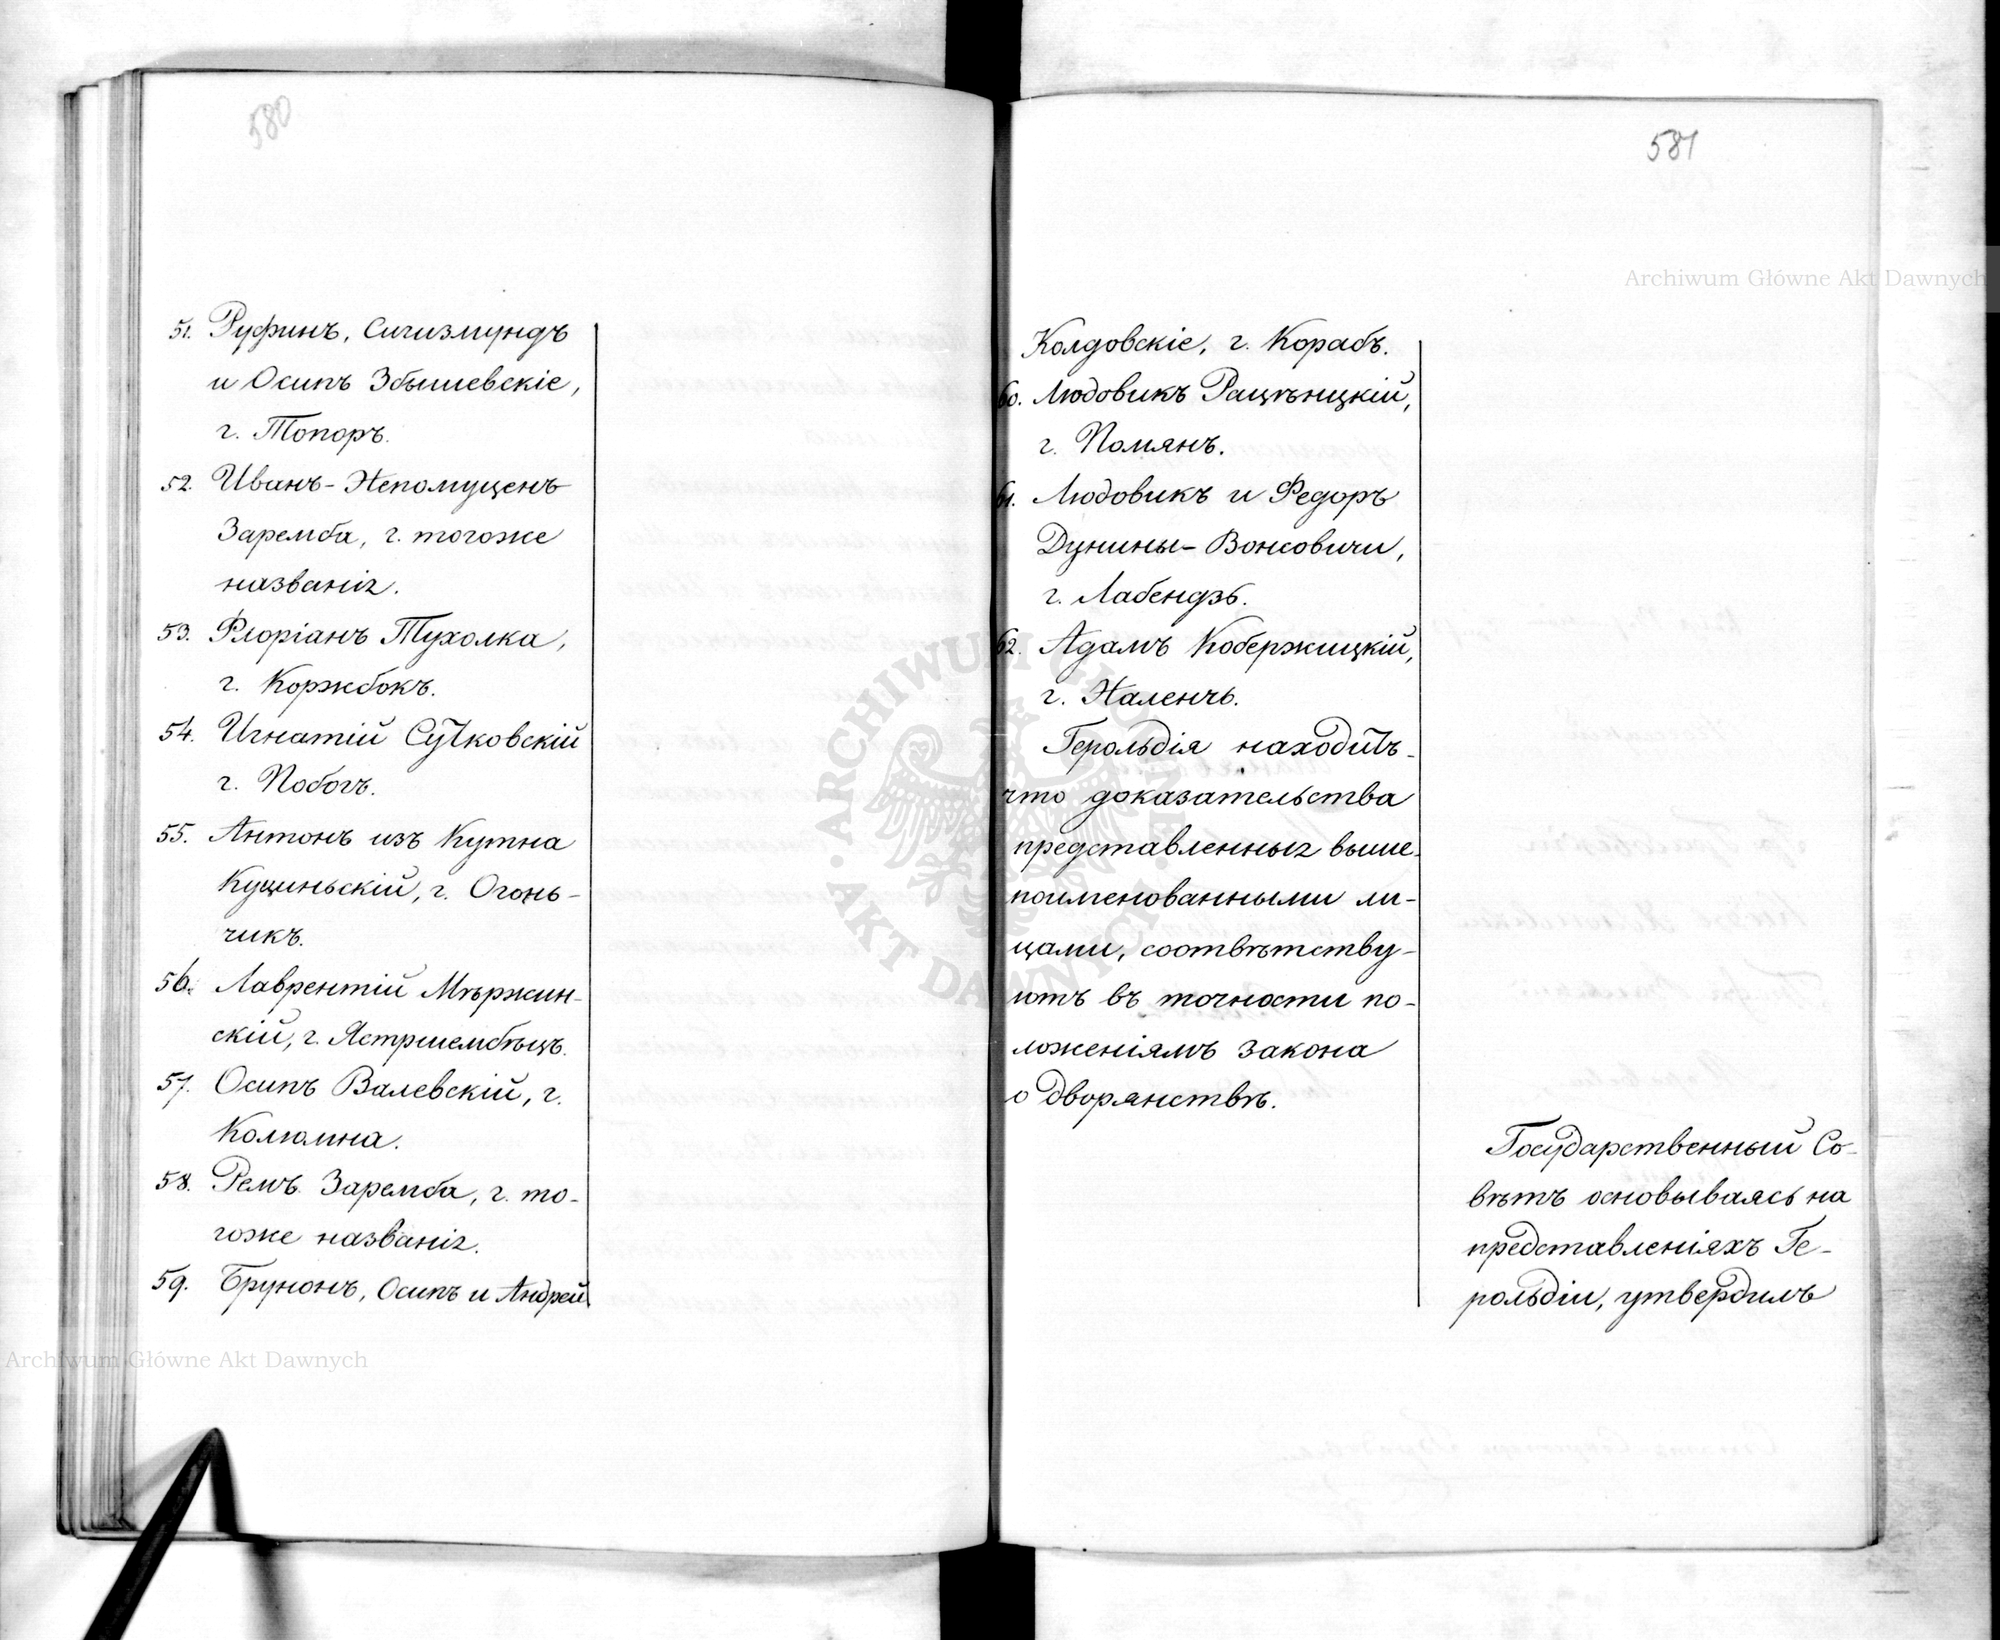 580
51. Руфинъ, Сигизмундъ
и Осипъ Збышевскіе,
г. Топоръ.
52. Иванъ-Непомуценъ
Заремба, г. тогоже
названія.
53. Флоріанъ Тухолка,
г. Коржбокъ.
54. Игнатій Сутковскій
г. Побогъ.
55. Антонъ изъ Кутна
Куциньскій, г. Огонь-
чикъ.
56. Лаврентій Мѣржин-
скій, г. Ястршембѣцъ.
57. Осипъ Валевскій, г.
Колюмна.
58. Ремъ Заремба, г. то-
гоже названія.
59. Брунонъ, Осипъ и Андрей
581
Колдовскіе, г. Корабъ.
60. Людовикъ Рацѣнцкій,
г. Помянъ.
61. Людовикъ и Федоръ
Дунины-Вонсовичи,
г. Лабендзь.
62. Адамъ Кобержицкій,
г. Наленчъ.
Герольдія находитъ
что доказательства
представленныя выше-
поименованными ли-
цами, соотвѣтству-
ютъ въ точности по-
ложеніямъ закона
о дворянствѣ.
Государственный Со-
вѣтъ основываясь на
представленіяхъ Ге-
рольдіи, утвердилъ
Archiwum Główne Akt Dawnych
Archiwum Główne Akt Dawnych
ARCHIWUM GŁÓWNE AKT DAWNYCH